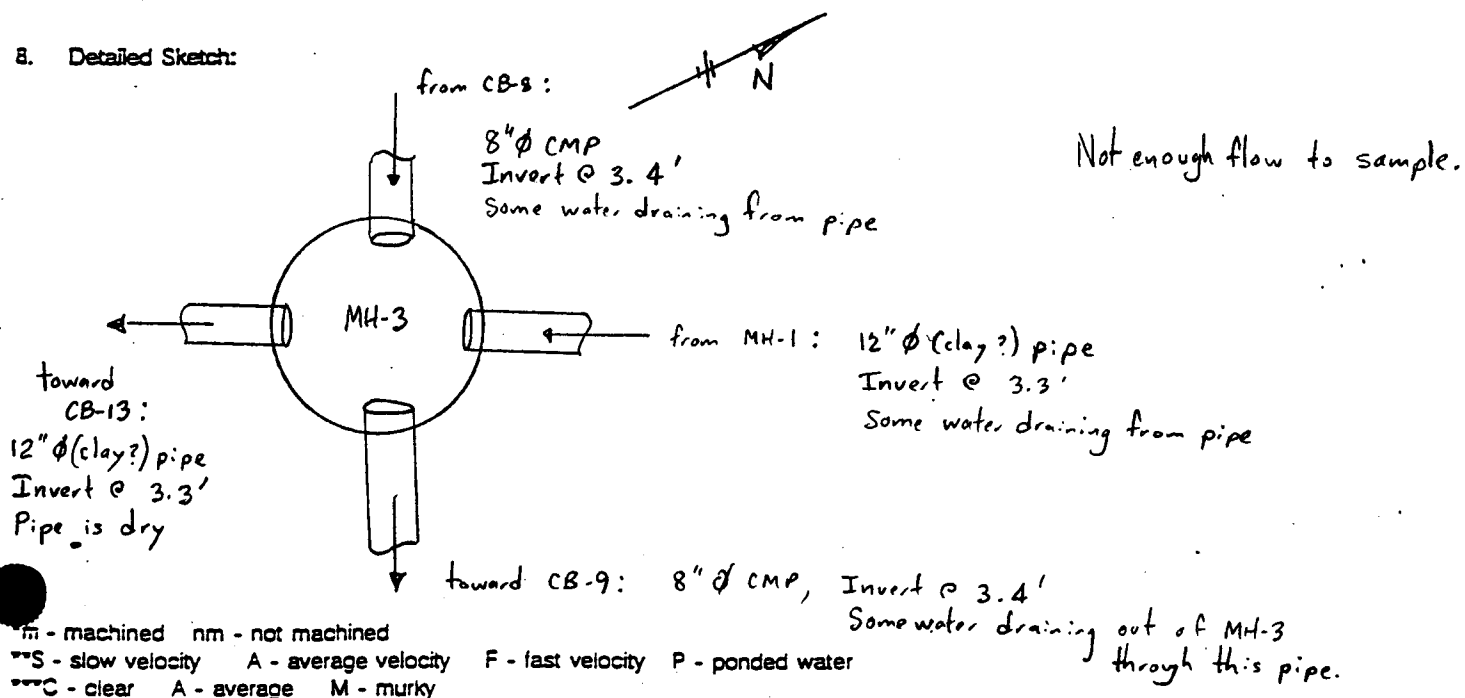 8. Detailed Sketch:
from CB-8:
8"ϕ CMP
Invert @ 3.4'
Some water draining from pipe
N
Not enough flow to sample.
MH-3
from MH-1: 12"ϕ (clay?) pipe
Invert @ 3.3'
Some water draining from pipe
toward
CB-13:
12"ϕ (clay?) pipe
Invert @ 3.3'
Pipe is dry
toward CB-9: 8"ϕ CMP, Invert @ 3.4'
Some water draining out of MH-3
through this pipe.
*m - machined nm - not machined
**S - slow velocity A - average velocity F - fast velocity P - ponded water
***C - clear A - average M - murky